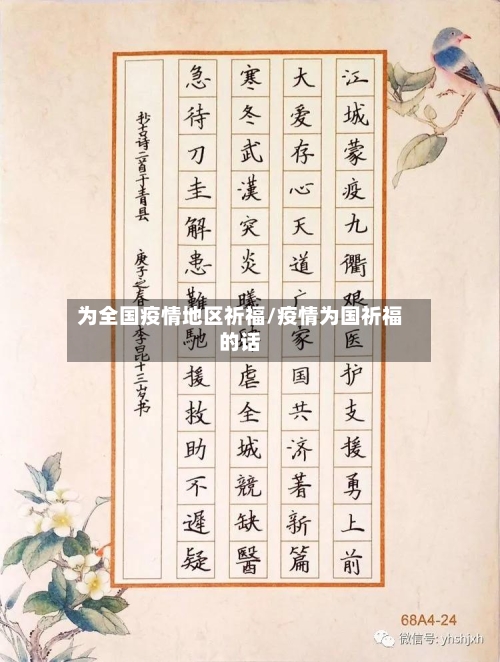 江城蒙疫九衢艰医护支援勇上前
大爱存心天道广家国共济著新篇
寒冬武漢突炎虐全城競缺醫
急待刀圭解患難馳援救助不遲疑
抄古诗二首于青县 庚子之春李昆十三岁书
为全国疫情地区祈福/疫情为国祈福
的话
68A4-24
微信号: yhshjxh